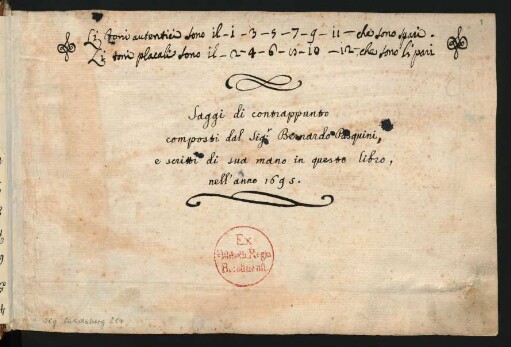 Li toni autentici sono il - 1 - 3 - 5 - 7 - 9 - 11 - che sono spari.
Li toni placali sono il - 2 - 4 - 6 - 8 - 10 - 12 - che sono li pari
Saggi di contrappunto
composti dal Sig.r Bernardo Pasquini,
e scritti di sua mano in questo libro,
nell'anno 1695.
Ex
Regia
Berolinensi